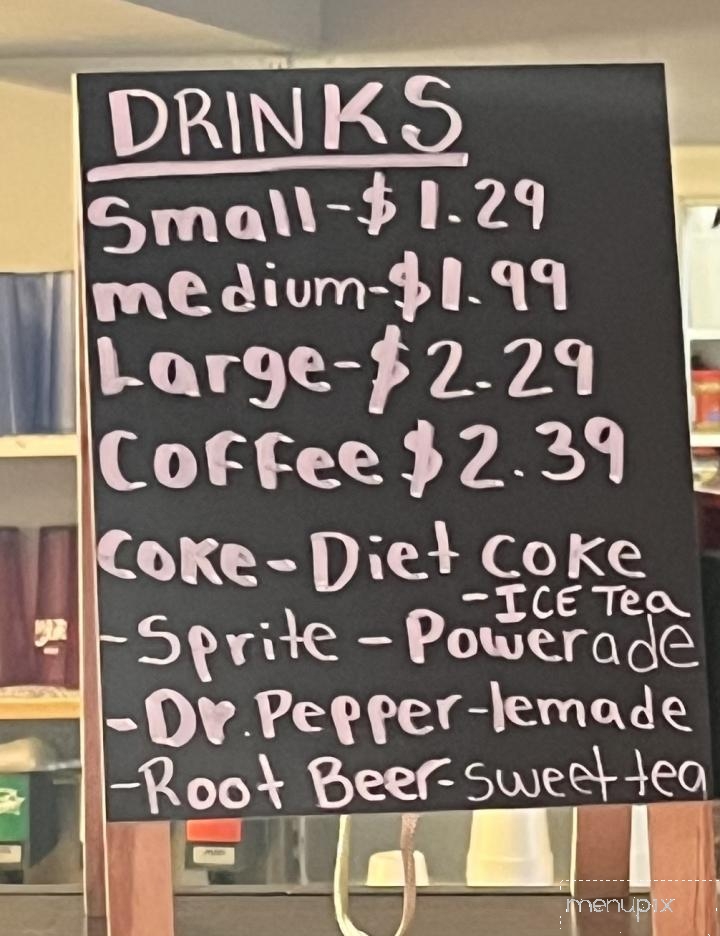 DRINKS
Small-$1.29
medium-$1.99
Large-$2.29
Coffee $2.39
Coke-Diet Coke
-ICE Tea
-Sprite-Powerade
-Dr.Pepper-lemade
-Root Beer-sweet tea
menupix